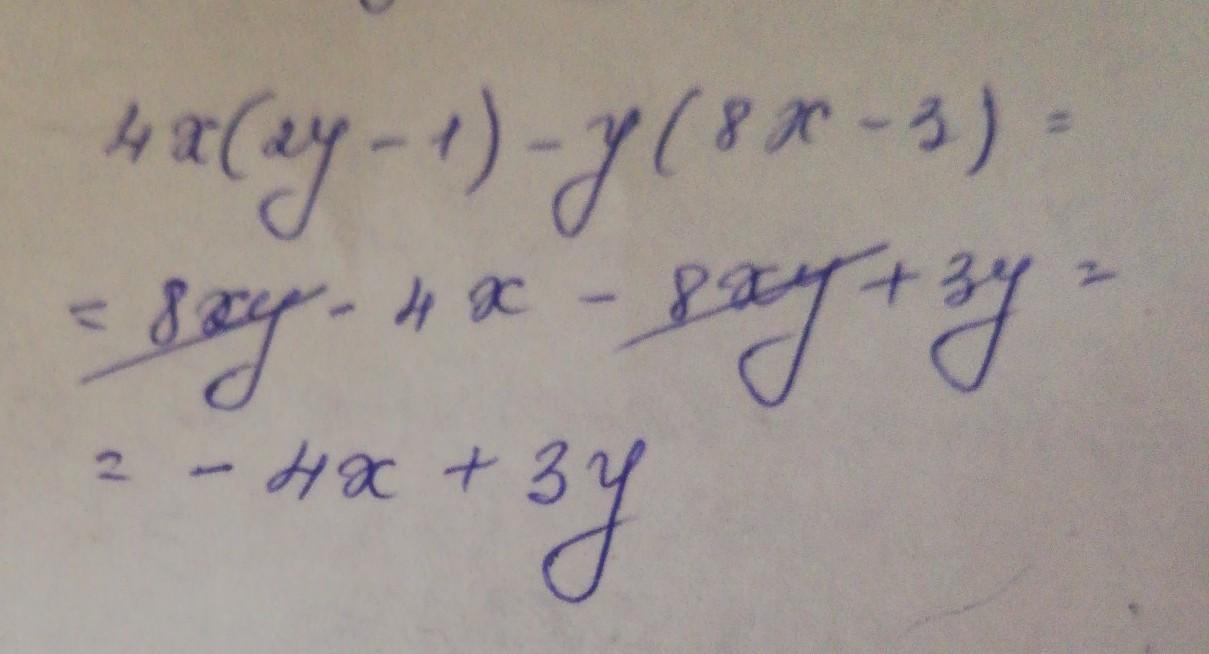 4x(2y-1)-y(8x-3)=
=8xy-4x-8xy+3y=
=-4x+3y